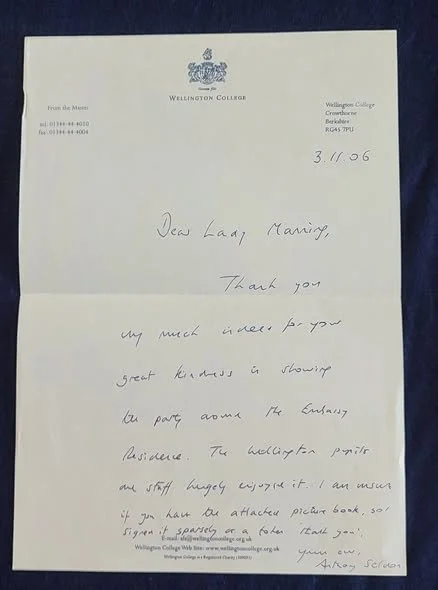 WELLINGTON COLLEGE
From the Master
tel: 01344 44 4010
fax: 01344 44 4004
Wellington College
Crowthorne
Berkshire
RG45 7PU
3.11.06
Dear Lady Manning,
Thank you
very much indeed for your
great kindness in showing
the party around the Embassy
Residence. The Wellington pupils
and staff hugely enjoyed it. I am unsure
if you have the attached picture book, so I
signed it sparsely as a token 'thank you'.
E-mail: @wellingtoncollege.org.uk
Wellington College Web Site: www.wellingtoncollege.org.uk
Wellington College is a Registered Charity
Yours ever,
Anthony Seldon